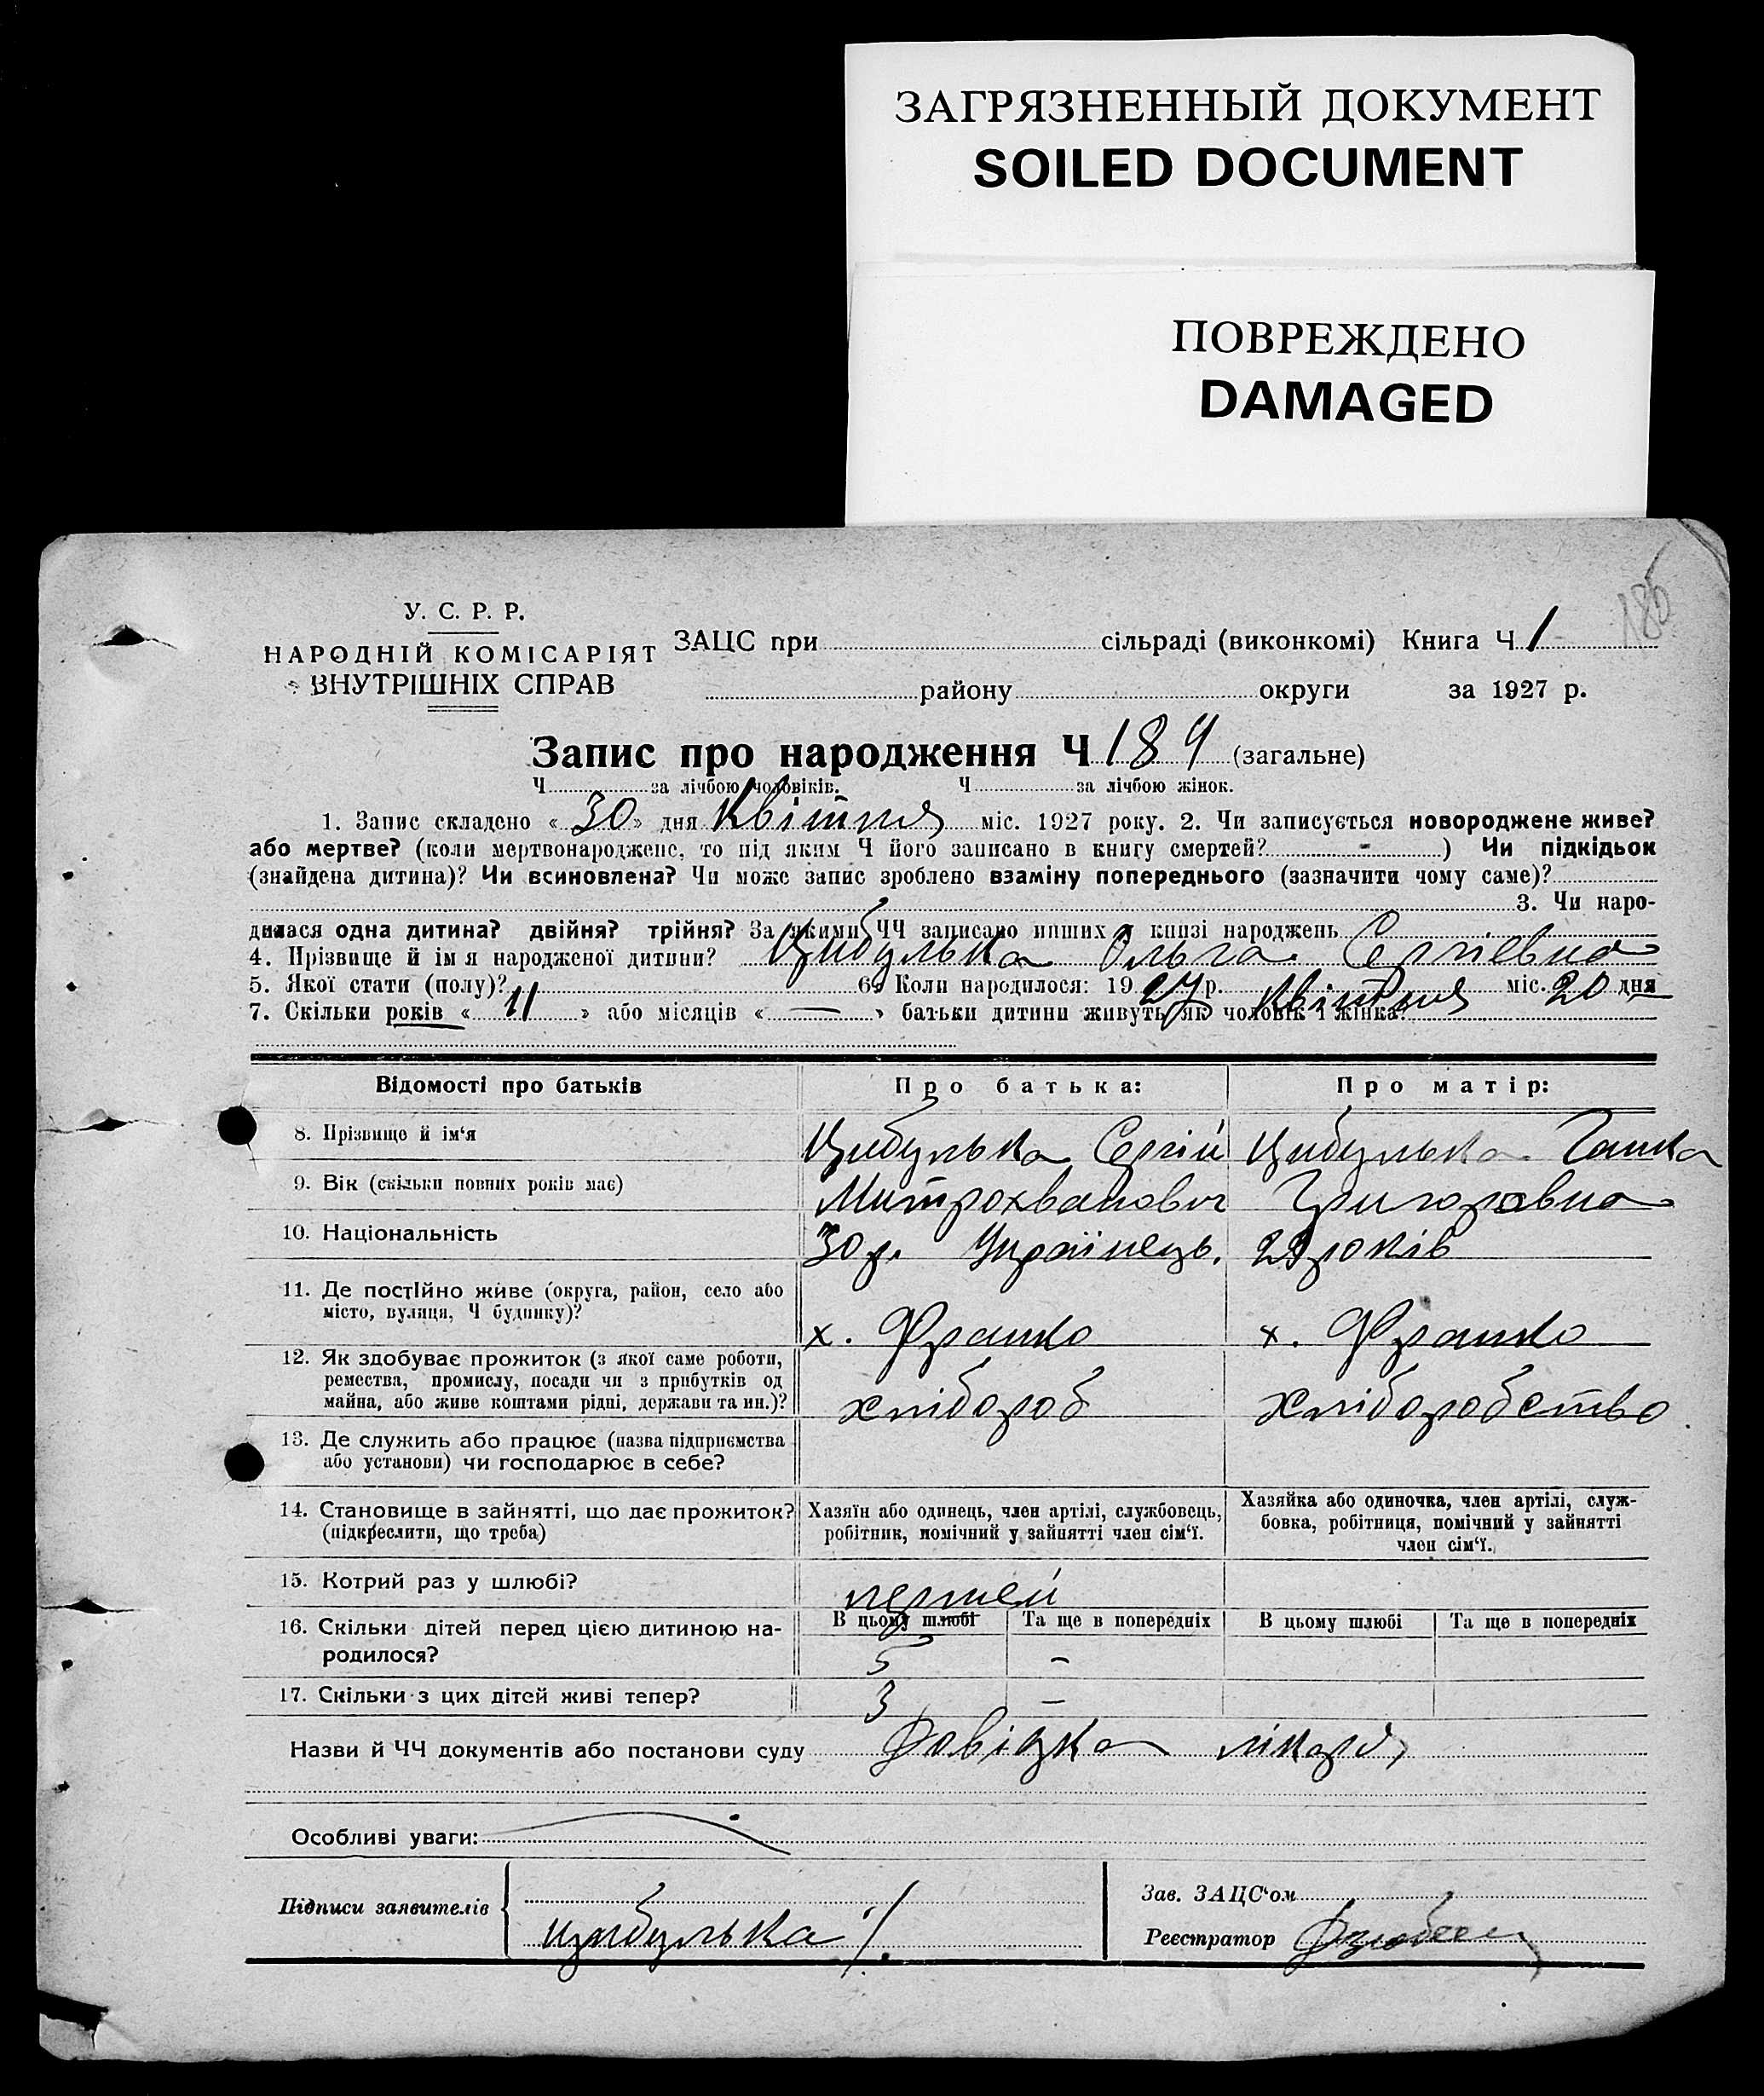 ЗАГРЯЗНЕННЫЙ ДОКУМЕНТ
SOILED DOCUMENT
ПОВРЕЖДЕНО
DAMAGED
У. С. Р. Р.
НАРОДНІЙ КОМІСАРІЯТ
ВНУТРІШНІХ СПРАВ
ЗАЦС при сільраді (виконкомі) Книга Ч 1
району округи за 1927 р.
Запис про народження Ч 184 (загальне)
Ч за лічбою чоловіків. Ч за лічбою жінок.
1. Запис складено « 30 » дня Квітня міс. 1927 року. 2. Чи записується новороджене живе?
або мертве? (коли мертвонароджене, то під яким Ч його записано в книгу смертей? - ) Чи підкідьок
(знайдена дитина)? Чи всиновлена? Чи може запис зроблено взаміну попереднього (зазначити чому саме)?
3. Чи наро-
дилася одна дитина? двійня? трійня? За якими ЧЧ записано инших у книзі народжень
4. Прізвище й ім я народженої дитини? Цибулька Ольга Сергіевна
5. Якої стати (полу)? 6. Коли народилося: 19 27 р. Квітня міс. 20 дня
7. Скільки років « 11 » або місяців « — » батьки дитини живуть як чоловік і жінка?
Відомості про батьків Про батька: Про матір:
8. Прізвище й ім‘я Цибулька Сергій Цибулька Ганка
9. Вік (скільки повних років має) Митрохванович Григоровна
10. Національність 30 р. Українець. 29 років
11. Де постійно живе (округа, район, село або
місто, вулиця, Ч будинку)? х. Франко х. Франко
12. Як здобуває прожиток (з якої саме роботи,
ремества, промислу, посади чи з прибутків од
майна, або живе коштами рідні, держави та ин.)? хлібороб Хліборобство
13. Де служить або працює (назва підприємства
або установи) чи господарює в себе?
14. Становище в зайнятті, що дає прожиток?
(підкреслити, що треба)
Хазяїн або одинець, член артілі, службовець,
робітник, помічний у зайнятті член сім‘ї.
Хазяйка або одиночка, член артілі, служ-
бовка, робітниця, помічний у зайнятті
член сім‘ї.
15. Котрий раз у шлюбі? першей
В цьому шлюбі Та ще в попередніх В цьому шлюбі Та ще в попередніх
16. Скільки дітей перед цією дитиною на-
родилося? 5 -
17. Скільки з цих дітей живі тепер? 3 -
Назви й ЧЧ документів або постанови суду Довідка лікаря
Особливі уваги:
Підписи заявителів цибулька
Зав. ЗАЦС‘ом
Реєстратор